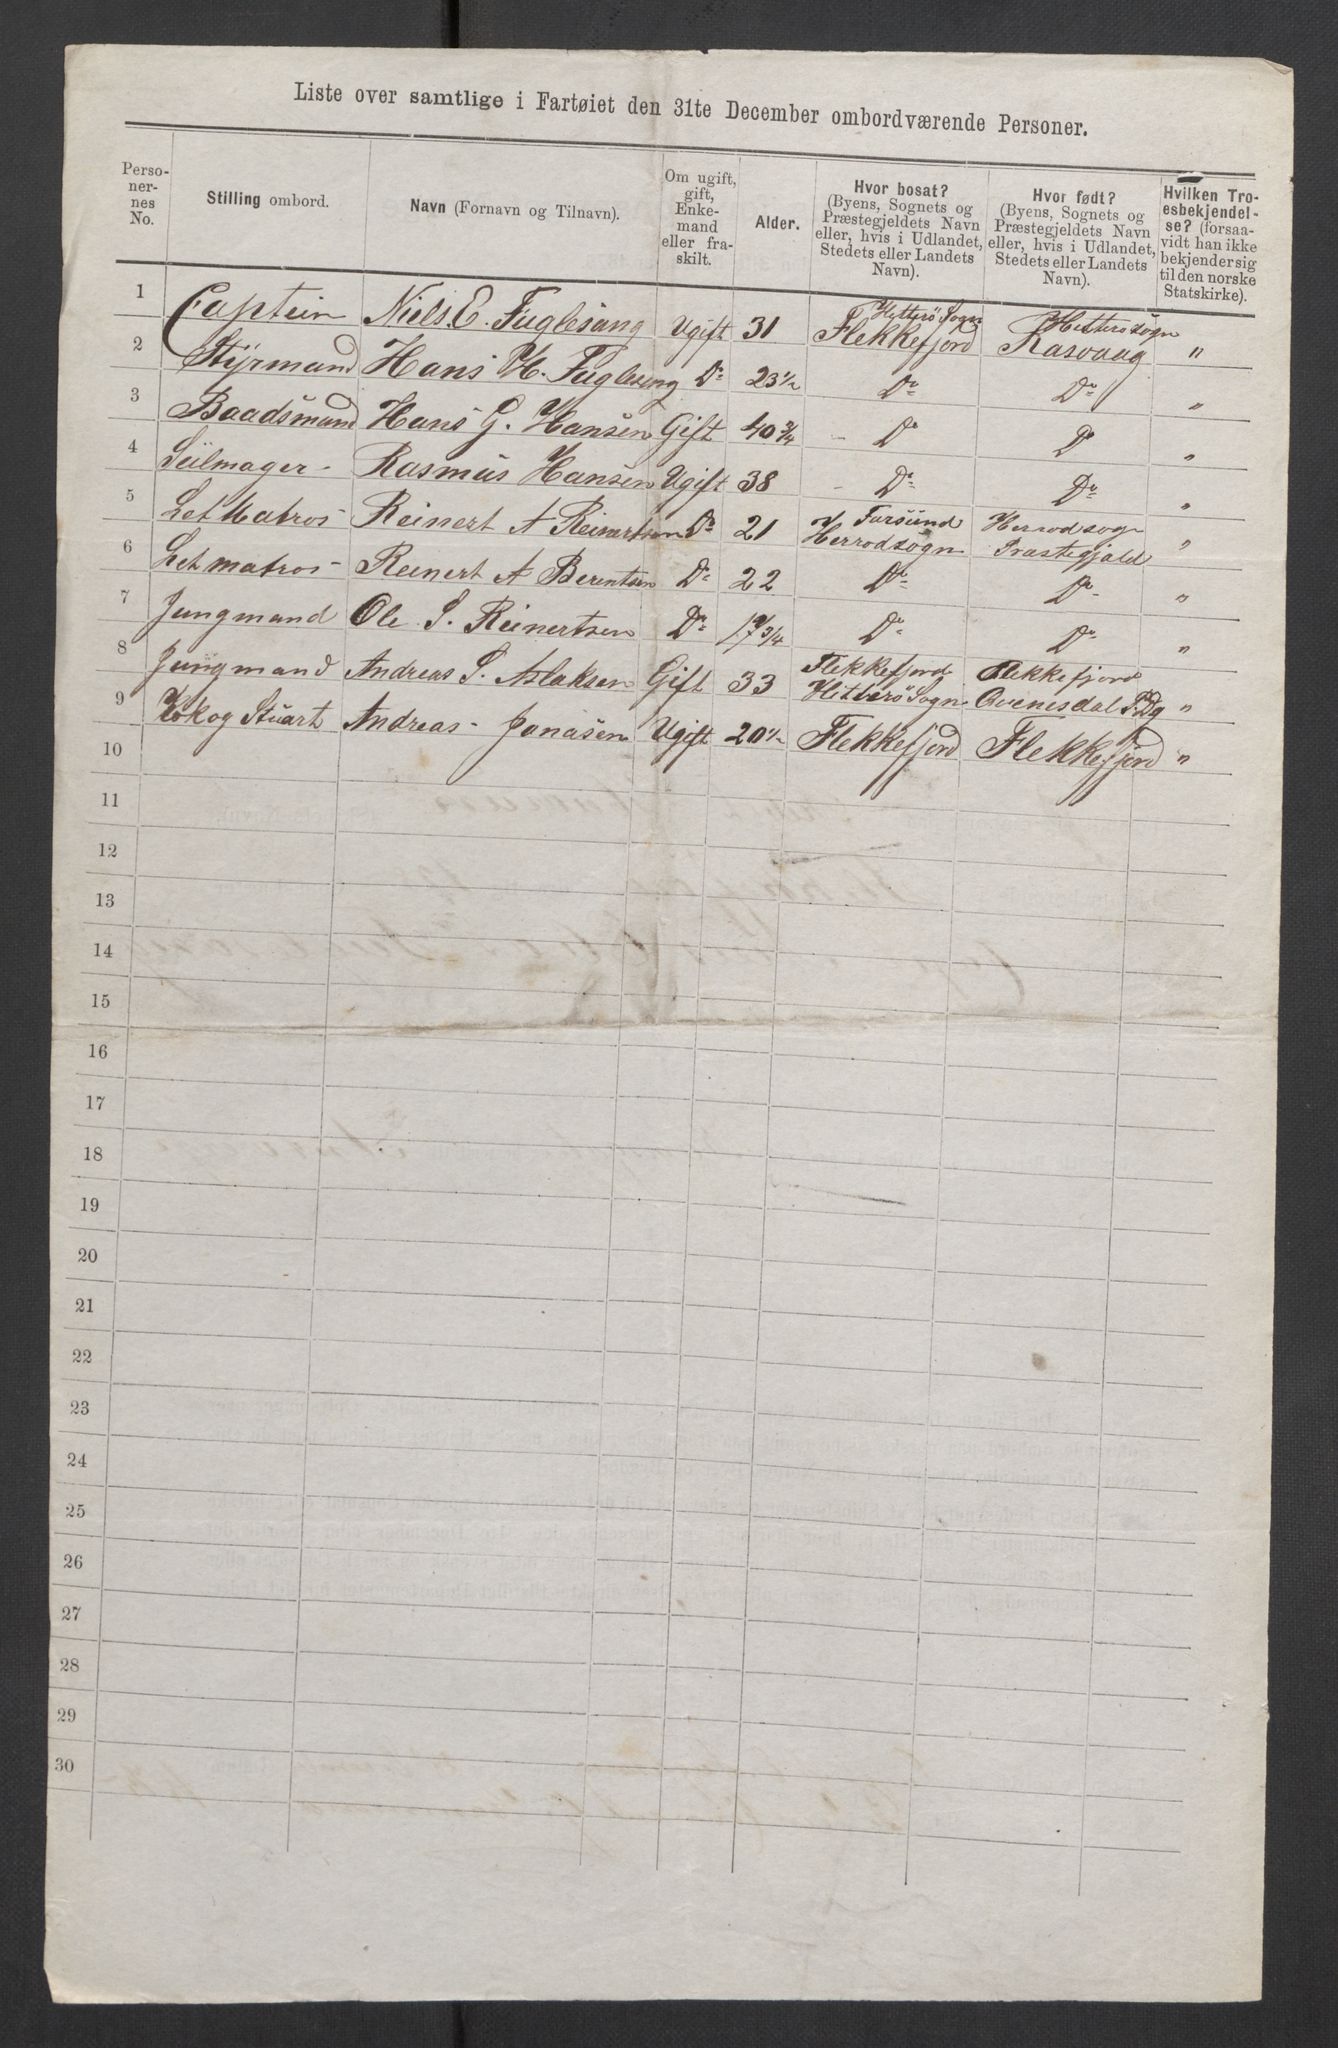 Liste over samtlige i Fartøiet den 31te December ombordværende Personer.
Perso-
ner-
nes
No.
Stilling ombord.
Navn (Fornavn og Tilnavn).
Om ugift,
gift,
Enke-
mand
eller fra-
skilt.
Alder.
Hvor bosat?
(Byens, Sognets og
Præstegjeldets Navn
eller, hvis i Udlandet,
Stedets eller Landets
Navn).
Hvor født?
(Byens, Sognets og
Præstegjeldets Navn
eller, hvis i Udlandet,
Stedets eller Landets
Navn).
Hvilken Tro-
esbekjendel-
se? (forsaa-
vidt han ikke
bekjender sig
til den norske
Statskirke).
Hitterö Sogn Hitterö sogn
1 Captein Niels E. Fuglesang Ugift 31 Flekkefjord Rasvaag "
2 Styrmand Hans H. Fuglesang Do 23 1/2 Do Do "
3 Baadsmand Hans G. Hansen Gift 40 3/4 Do Do "
4 Seilmager Rasmus Hansen Ugift 38 Do Do "
Farsund Herrodsogn
5 Let Matros Reinert A Reinertsen Do 21 Herrodsogn Præstegjald "
6 Let matros Reinert A Berentsen Do 22 Do Do "
7 Jungmand Ole S. Reinertsen Do 17 3/4 Do Do "
Flekkefjord Flekkefjord
8 Jungmand Andreas S. Aslaksen Gift 33 Hitterö Sogn Qvenesdal "
9 Kok og Stuart Andreas Jonasen Ugift 20 1/2 Flekkefjord Flekkefjord "
10
11
12
13
14
15
16
17
18
19
20
21
22
23
24
25
26
27
28
29
30